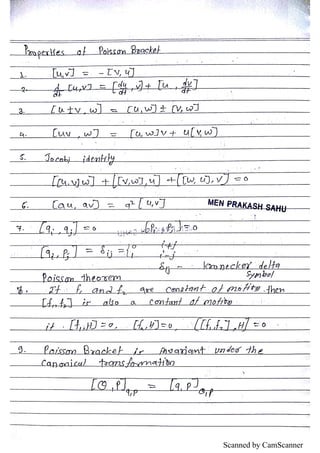 Properties of Poisson Bracket
1. [u,v] = - [v, u]
2. d/dt [u,v] = [du/dt, v] + [u, dv/dt]
3. [u±v, w] = [u, w] ± [v, w]
4. [uv, w] = [u, w]v + u[v, w]
5. Jocobi identity
[[u,v]w] + [[v,w],u] + [[w, u], v] = 0
6. [au, av] = a² [u,v] MEN PRAKASH SAHU
7. [qi, qj] = 0 [Pi, Pj] = 0
[qi, Pj] = δij = {0 i≠j
1 i=j
δij - kronecker delta
Symbol
Poisson theorem
8. If f1 and f2 are constant of motion then
[f1, f2] is also a constant of motion
if [f1,H] = 0, [f2,H] = 0, [[f1,f2],H] = 0
9. Poisson Bracket is invariant under the
canonical transformation
[Q, P]q,p = [q, p]Q,P
Scanned by CamScanner